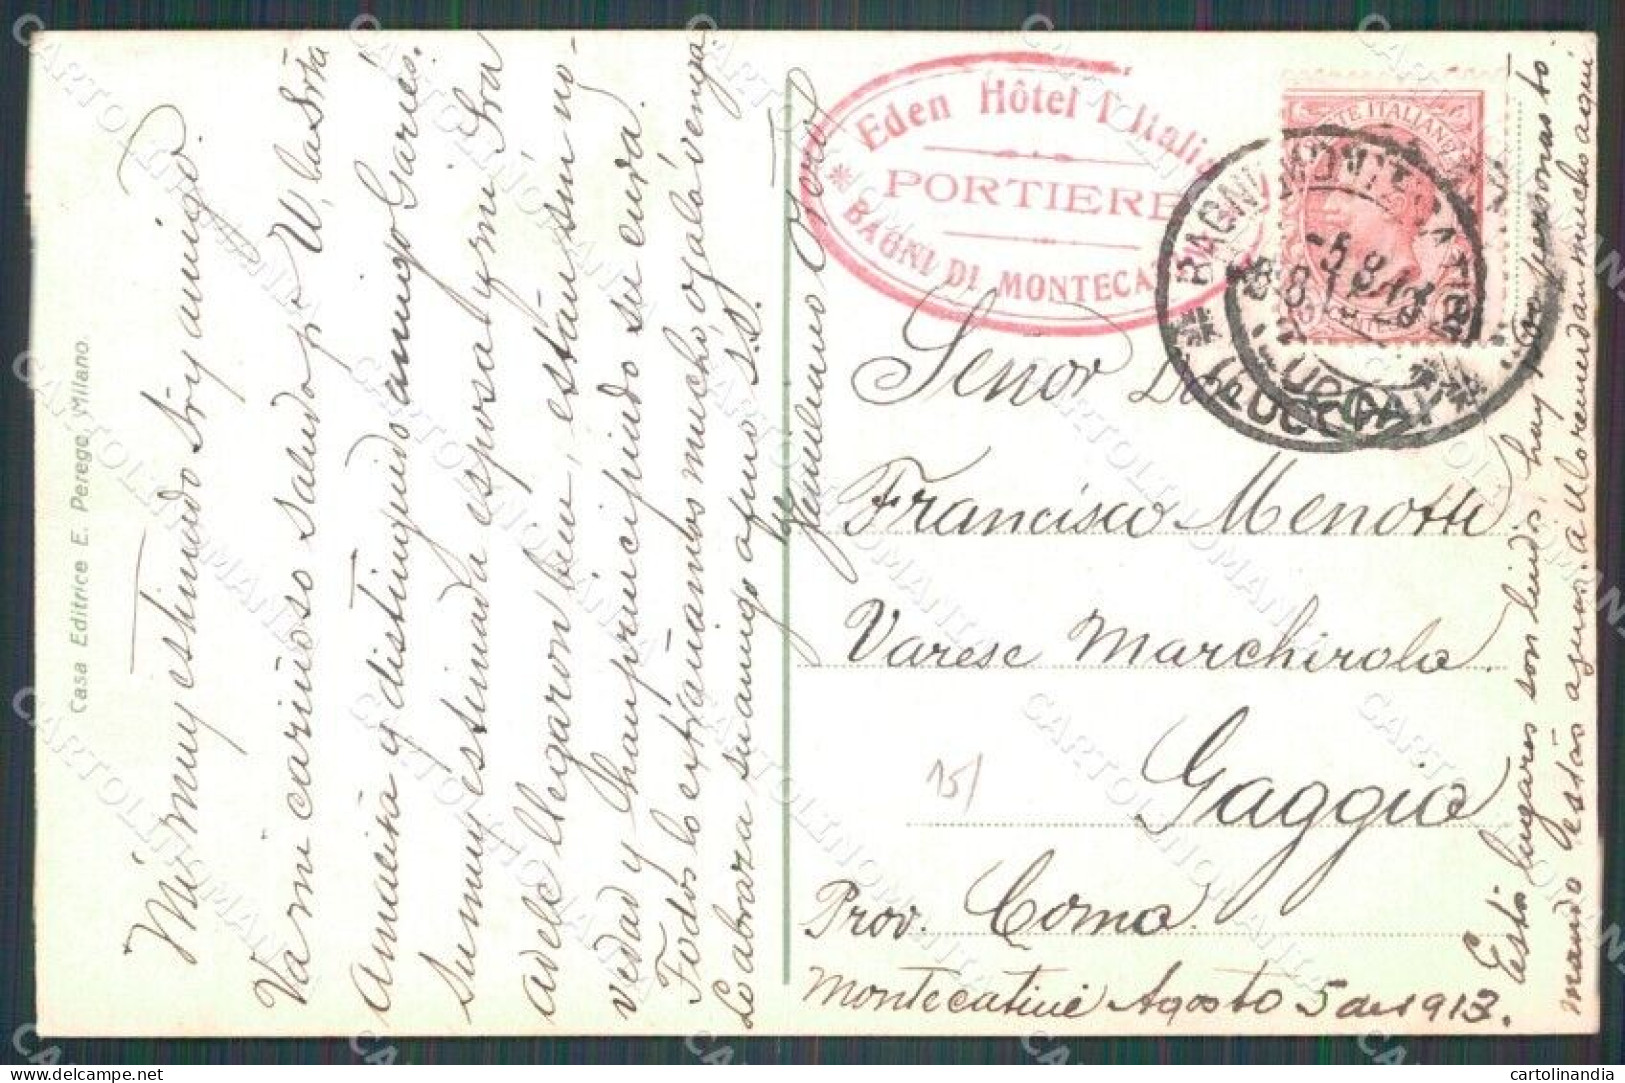 Mi muy estimado Sr y amigo
Van mi cariñoso saludo pa U, la Srta
Anita y distinguido amigo Garies.
Su muy estimada esposa y mi Sra
adele llegaron bien, están sin no-
vedad y han principiado su cura.
Todos lo extrañamos mucho, ojalá venga.
Lo abraza su amigo afmo S.S.
Casa Editrice E. Perego, Milano.
Eden Hôtel l'Italia
PORTIERE
BAGNI DI MONTECA
TE ITALIANE
BAGNI MONTECATINI
-5.8.13
(LUCCA)
Señor Dn
Francisco Menotti
Varese Marchirola.
Gaggio
15/
Prov. Como.
Montecatini Agosto 5 de 1913.
Esto lugares son lindos, hay personas
mando estás aguas.
mucho aqui
CARTOLINOMANIA
cartolinandia